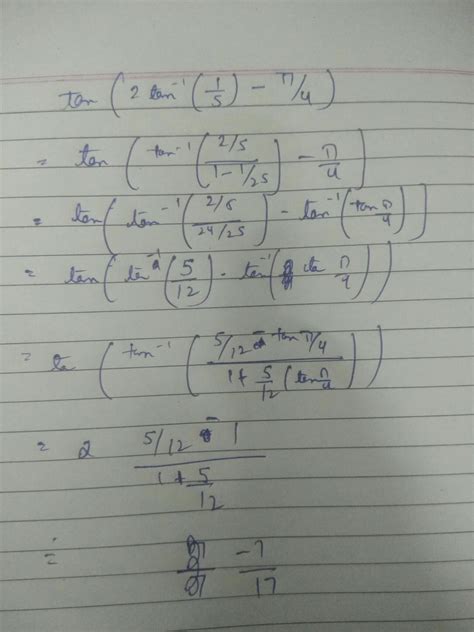 tan (2 tan⁻¹ (1/5) - π/4)
= tan (tan⁻¹ ((2/5)/(1 - 1/25)) - π/4)
= tan (tan⁻¹ ((2/5)/(24/25)) - tan⁻¹ (tan π/4))
= tan (tan⁻¹ (5/12) - tan⁻¹ (ta π/4))
= ta (tan⁻¹ ((5/12 - tan π/4)/(1 + 5/12 (tan π/4))))
= 2 (5/12 - 1)/(1 + 5/12)
= -7/17